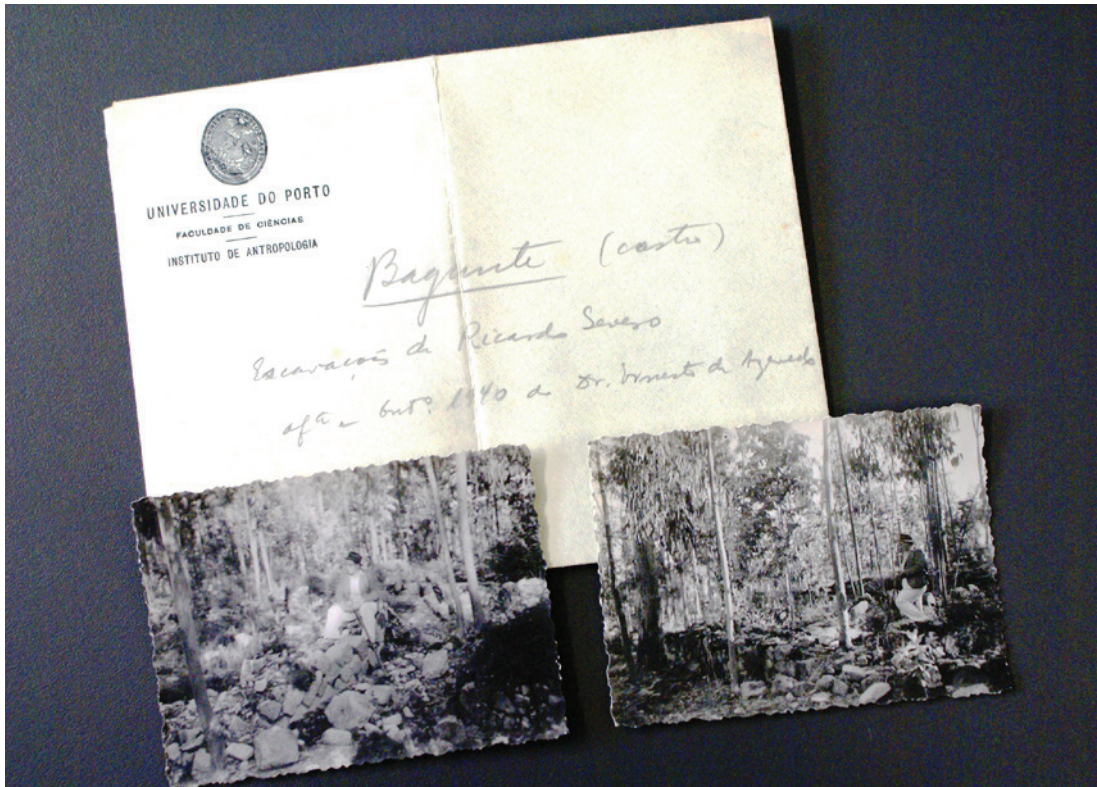 UNIVERSIDADE DO PORTO
FACULDADE DE CIÊNCIAS
INSTITUTO DE ANTROPOLOGIA
Bagunte (castro)
Escavações de Ricardo Severo
1940 Dr. Ernesto de Azevedo